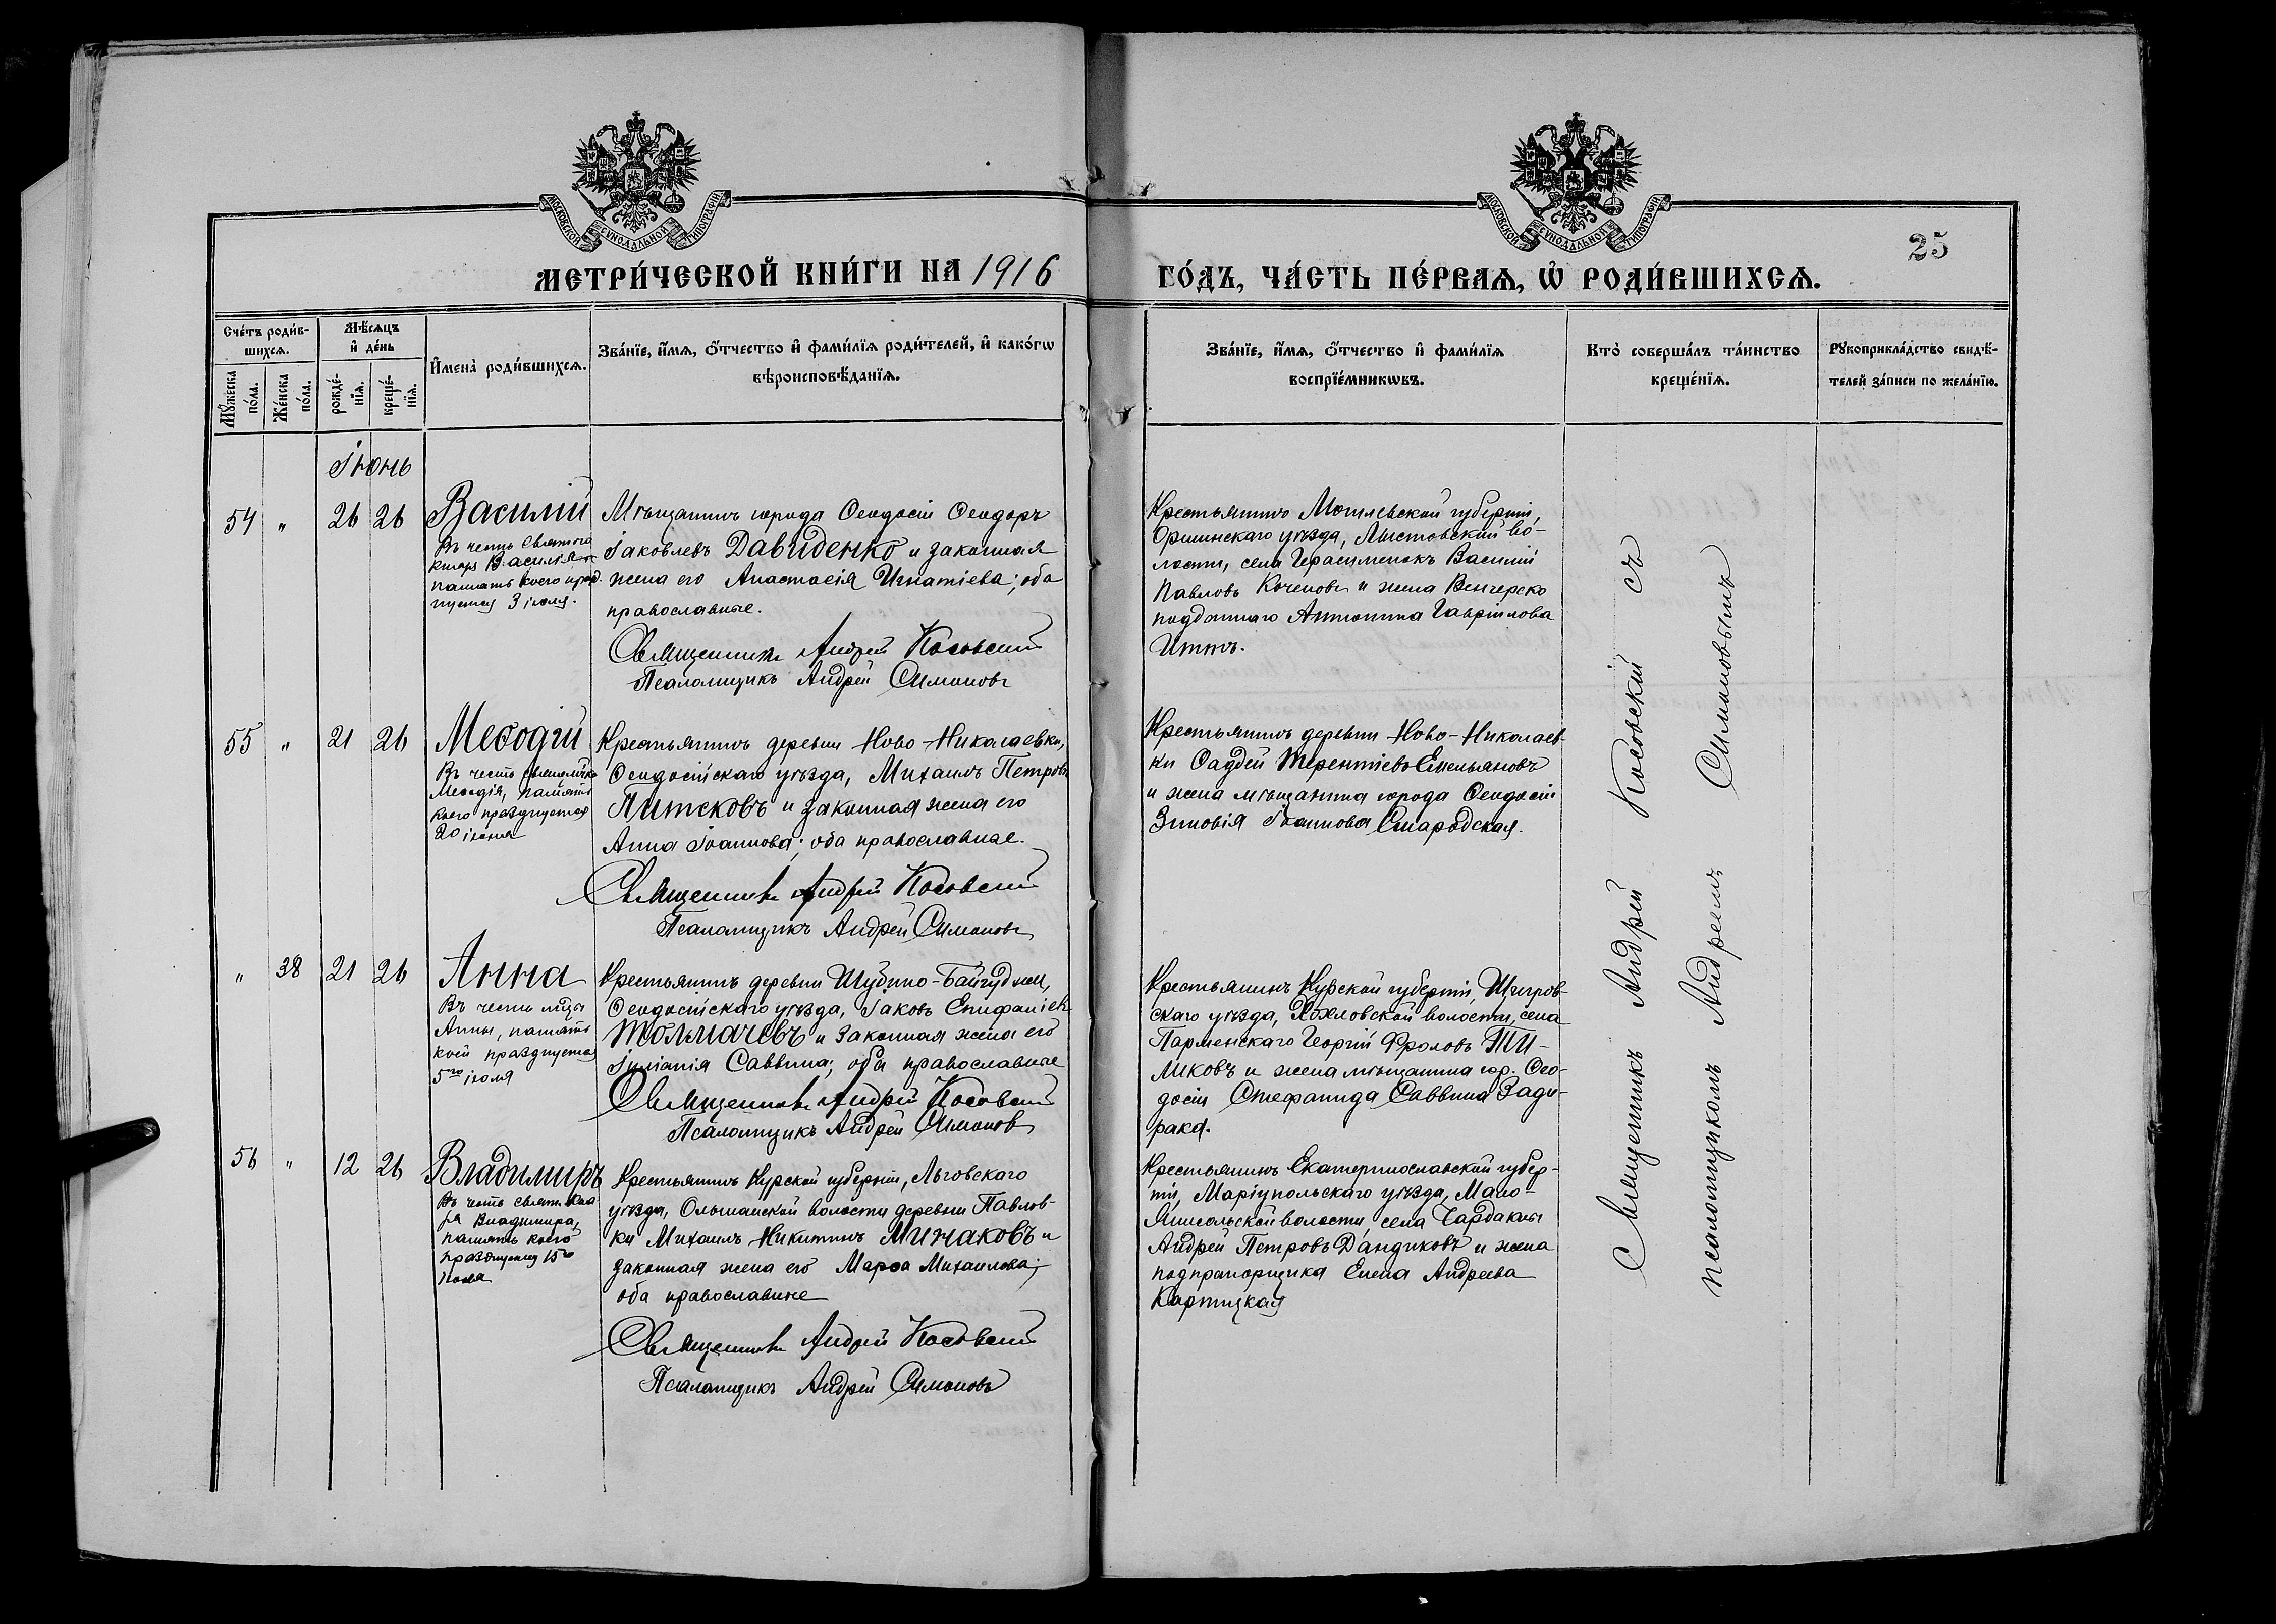 МОСКОВСКОЙ СѴНОДАЛЬНОЙ ТИПОГРАФІИ
МОСКОВСКОЙ СѴНОДАЛЬНОЙ ТИПОГРАФІИ
25
МЕТРИ́ЧЕСКОЙ КНИ́ГИ НА 1916
ГО́ДЪ, ЧА́СТЬ ПЕ́РВАѦ, Ѡ҆ РОДИ́ВШИХСѦ.
Сче́тъ роди́в-
шихсѧ.
Мꙋ́жеска по́ла.
Же́нска по́ла.
Мѣ́сѧцъ
и҆ де́нь
рожде́-
нїѧ.
креще́-
нїѧ.
И҆мена̀ роди́вшихсѧ.
Зва́нїе, и҆́мѧ, ѻ҆́тчество и҆ фами́лїѧ роди́телей, и҆ како́гѡ
вѣроисповѣ́данїѧ.
Зва́нїе, и҆́мѧ, ѻ҆́тчество и҆ фами́лїѧ
воспрїе́мникѡвъ.
Кто̀ соверша́лъ та́инство
креще́нїѧ.
Рꙋкоприкла́дство свидѣ́-
телей за́писи по жела́нїю.
Iюнь
54 " 26 26
Василій
Въ честь святого
Василія
память коего празд
3 іюля.
Мѣщанинъ города Ѳеодосіи Ѳеодоръ
Іаковлевъ Давиденко и законная
жена его Анастасія Игнатіева; оба
православные.
Священникъ Андрей Косовскій
Псаломщикъ Андрей Симоновъ
Крестьянинъ Могилевской губерніи,
Оршинскаго уѣзда, во-
лости, села Герасименокъ Василій
Павловъ и жена Венгерско
подданнаго Антонина Гавріилова
55 " 21 26
Меѳодій
Въ честь священномуч.
Меѳодія, память
коего празднуется
20 іюня
Крестьянинъ деревни Ново-Николаевки,
Ѳеодосійскаго уѣзда, Михаилъ Петровъ
Питсковъ и законная жена его
Анна Іоаннова; оба православные.
Священникъ Андрей Косовскій
Псаломщикъ Андрей Симоновъ
Крестьянинъ деревни Ново-Николаев-
ки Ѳаддей Терентіевъ Емельяновъ
и жена мѣщанина города Ѳеодосіи
Зиновія Іоаннова Смародская.
" 38 21 26
Анна
Въ честь
Анны, память
коей празднуется
5го іюля
Крестьянинъ деревни Шубино-Байгуджи,
Ѳеодосійскаго уѣзда, Іаковъ Епифаніев
Толмачевъ и законная жена его
Іуліанія Саввина; оба православные
Священникъ Андрей Косовскій
Псаломщикъ Андрей Симоновъ
Крестьянинъ Курской губерніи, Щигров-
скаго уѣзда, волости, села
Парменскаго Георгій Фроловъ Ти-
миковъ и жена мѣщанина гор. Ѳео-
досіи Стефанида Саввина Зади-
рака.
56 " 12 26
Владимиръ
Въ честь свят. Кня
зя Владимира,
память коего
празднуется 15го
Іюля
Крестьянинъ Курской губерніи, Льговскаго
уѣзда, Ольшанской волости деревни Павлов-
ки Михаилъ Никитинъ Минаковъ и
законная жена его Марѳа Михаилова;
оба православные
Священникъ Андрей Косовскій
Псаломщикъ Андрей Симоновъ
Крестьянинъ Екатеринославской губер-
ніи, Маріупольскаго уѣзда, Мало-
Янисольской волости, села Чардаклы
Андрей Петровъ Дандиковъ и жена
подпрапорщика Елена Андреева
Картицкая
Священникъ Андрей Косовскій съ
псаломщикомъ Андреемъ Симоновымъ